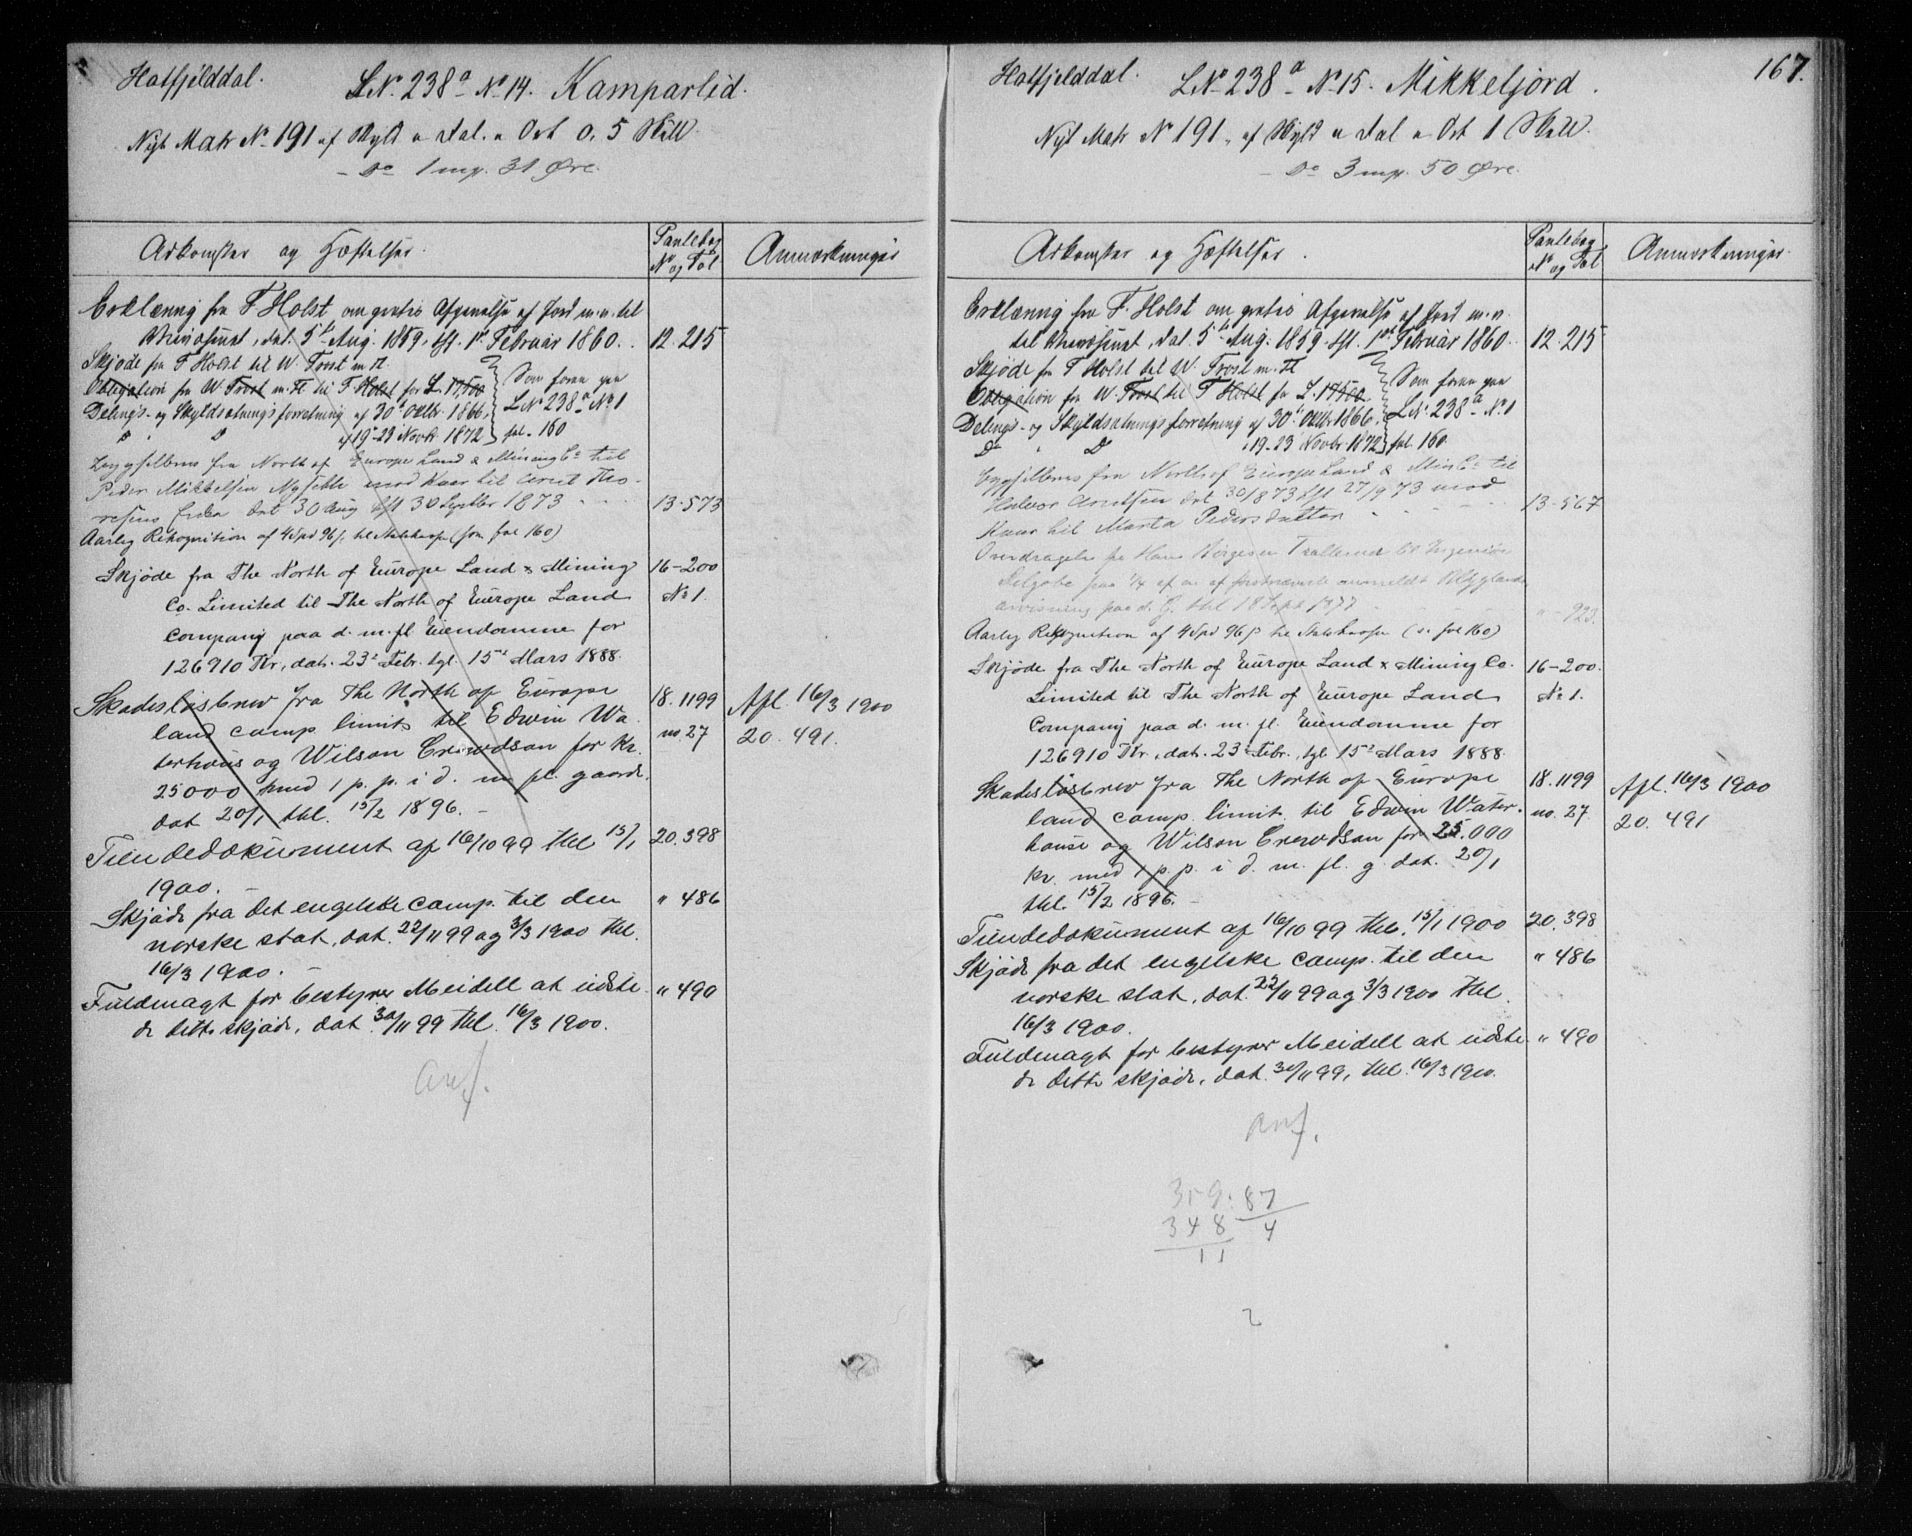 Hatfjelddal. LNo 238a No 14. Kamparlid.
Nyt Matr No 191 af Skyld " Dal. " Ort 0,5 Skill
- Do 1 mp. 31 Øre.
Adkomster og Hæftelser.
Pantebog
No og Fol
Anmærkninger
Erklæring fra F. Holst om gratis Afgivelse af Jord m.v. til
dat. 5te Aug. 1859, tgl. 1st Februar 1860. . 12.215
Skjøde fra F Holst til W. Frost m. fl.
Obligation fra W. Frost m. fl til F Holst for L. 17,500
Delings- og Skyldsætningsforretning af 30te Oktbr. 1866,
D " D af 19-23 Novbr 1872
Som foran paa
LNo 238a No 1
fol. 160
Bygselbrev fra North of Europe Land & Mining Co til
Peder Mikkelsen Nysæth mod Kaar til Arnt Tho-
resens Enke dat 30 Aug tgl 30 Septbr 1873 . . . 13-573
Aarlig Rekognition af 4 Spd 96 s. til Statskassen (som fol 160)
Skjøde fra The North of Europe Land & Mining 16-200
Co. Limited til The North of Europe Land No 1.
Company paa d. m. fl Eiendomme for
126910 Kr., dat. 23de Febr. tgl. 15de Mars 1888.
Skadesløsbrev fra The North of Europe 18.1199 Afl. 16/3 1900
land comp. limit. til Edwin Wa- no. 27 20. 491.
terhouse og Wilson Crewdson for Kr.
25000 med 1 p. p. i d. m. fl. gaarde.
dat 20/1 thl. 15/2 1896. -
Tiendedokument af 16/10 99 thl 15/1 20.398
1900.
Skjøde fra det engelske comp. til den " 486
norske stat, dat. 22/11 99 og 3/3 1900 thl.
16/3 1900.
Fuldmagt for bestyrer Meidell at udste- " 490
de dette skjøde, dat. 30/11 99 thl. 16/3 1900.
Anf.
167.
Hatfjelddal. LNo 238a No 15. Mikkeljord.
Nyt Matr No 191, af Skyld " Dal " Ort 1 Skill.
- Do 3 mp. 50 Øre.
Adkomster og Hæftelser.
Pantebog
No og Fol
Anmærkninger.
Erklæring fra F. Holst om gratis Afgivelse af Jord m.v.
til dat 5te Aug. 1859. tgl. 1ste Februar 1860. 12.215
Skjøde fra F Holst til W. Frost m. fl
Obligation fra W. Frost til F Holst for L. 17500.
Delings- og Skyldsætningsforretning af 30te Oktbr 1866,
Do " D " 19-23 Novbr. 1872
Som foran paa
LNo 238a No 1
fol. 160.
Bygselbrev fra North of Europe Land & Min Co til
Halvor Arntsen dat 30/8 73 tgl 27/9 73 mod 13-567
Kaar til Marta Pedersdatter
Overdragelse fra Hans Børgesen til Ingeniør
paa 1/4 af en af førstnævnte anmeldt
anvisning paa d. G. thl 18 Sept 1877 " - 923.
Aarlig Rekognition af 4 Spd 96 s til Statskassen (s. fol 160)
Skjøde fra The North of Europe Land & Mining Co. 16-200.
Limited til The North of Europe Land No 1.
Company paa d. m. fl. Eiendomme for
126910 Kr., dat. 23de Febr., tgl 15de Mars 1888.
Skadesløsbrev fra The North of Europe 18.1199 Afl. 16/3 1900
land comp. limit. til Edwin Water- no. 27 20. 491
house og Wilson Crewdson for 25.000
kr. med 1 p. p. i d. m. fl. g. dat. 20/1
thl. 15/2 1896. -
Tiendedokument af 16/10 99 thl. 15/1 1900 20.398
Skjøde fra det engelske comp. til den " 486
norske stat, dat. 22/11 99 og 3/3 1900 thl.
16/3 1900.
Fuldmagt for bestyrer Meidell at udste- " 490
de dette skjøde, dat. 30/11 99, thl. 16/3 1900.
Anf.
359:87
348 4
11
2